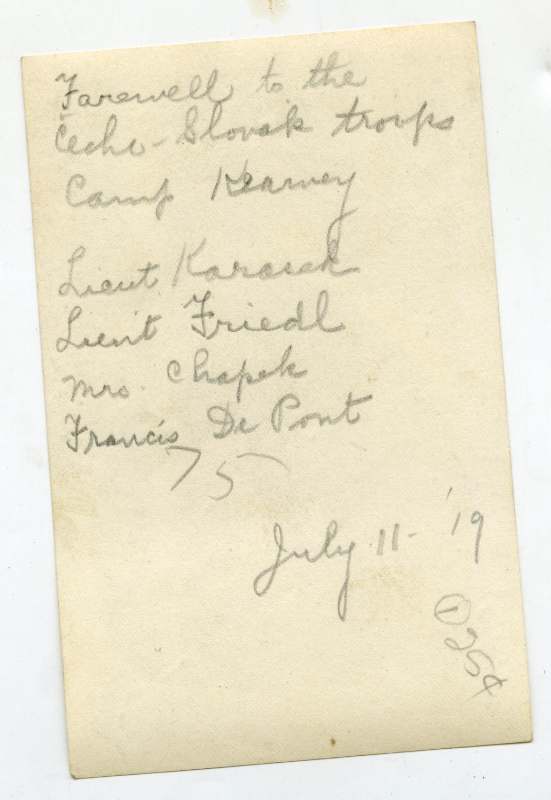 Farewell to the
Čecho-Slovak troops
Camp Kearney
Lieut Karasek
Lieut Friedl
Mrs. Chapek
Francis De Pont
75
July 11- '19
1 25¢